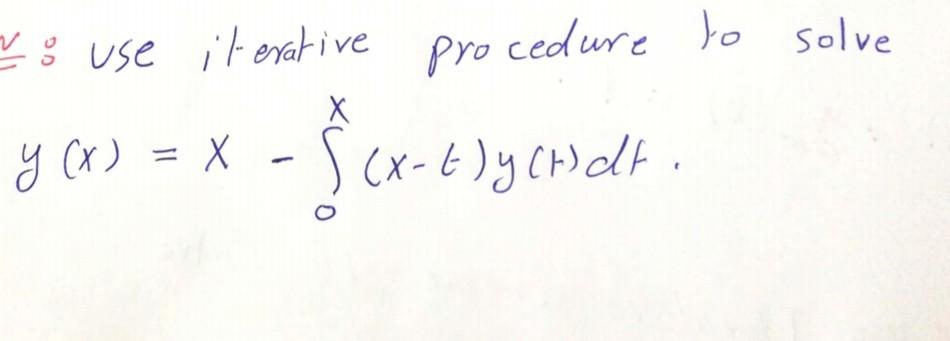 : use iterative procedure to solve
y(x) = x - ∫₀ˣ (x-t)y(t)dt.